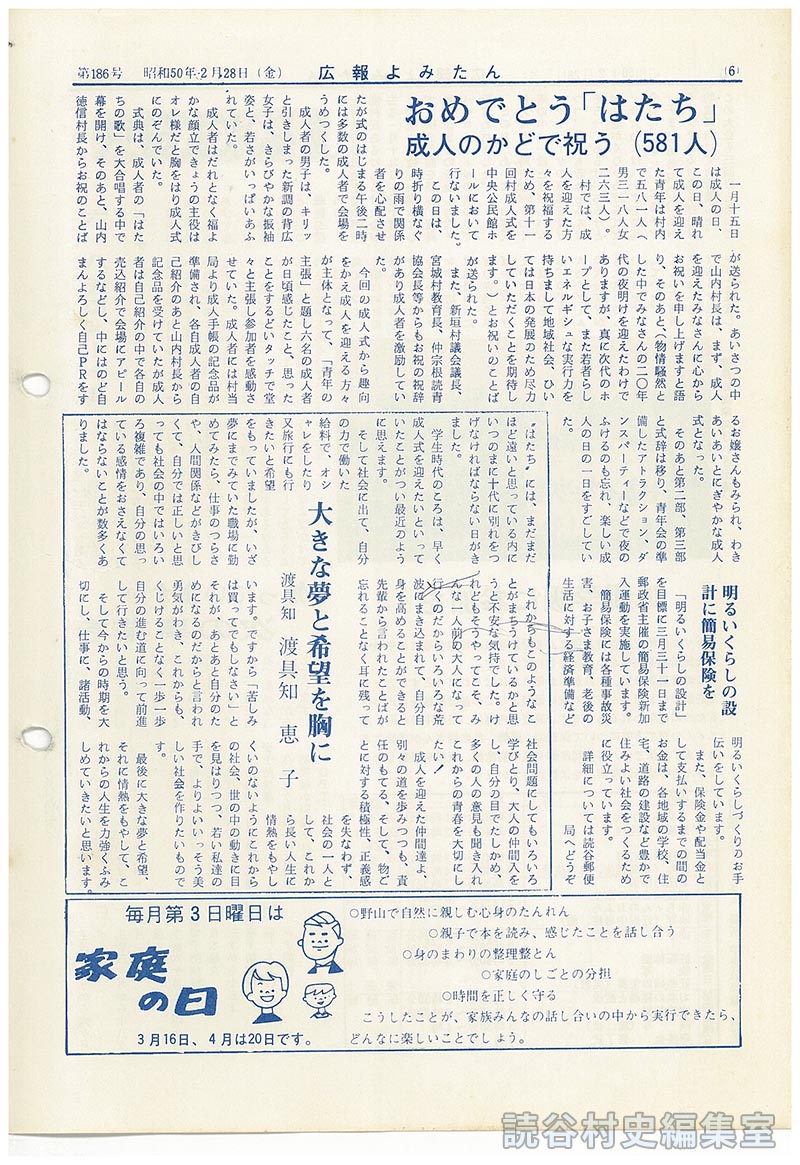 第186号　昭和50年・2月28日（金）　広報よみたん　(6)
おめでとう「はたち」
成人のかどで祝う (581人)
一月十五日
は成人の日、
この日、晴れ
て成人を迎え
た青年は村内
で五八一人（
男三一八人女
二六三人）。
村では、成
人を迎えた方
々を祝福する
ため、第十一
回村成人式を
中央公民館ホ
ールにおいて
行ないました。
この日は、
時折り横なぐ
りの雨で関係
者を心配させ
たが式のはじまる午後二時
には多数の成人者で会場を
うめつくした。
成人者の男子は、キリッ
と引きしまった新調の背広
女子は、きらびやかな振袖
姿と、若さがいっぱいあふ
れていた。
成人者はだれとなく福よ
かな顔立できょうの主役は
オレ様だと胸をはり成人式
にのぞんでいた。
式典は、成人者の「はた
ちの歌」を大合唱する中で
幕を開け、そのあと、山内
徳信村長からお祝のことば
が送られた。あいさつの中
で山内村長は、まず、成人
を迎えたみなさんに心から
お祝いを申し上げますと語
り、そのあと、物情騒然と
した中でみなさんの二〇年
代の夜明けを迎えたわけで
ありますが、真に次代のホ
ープとして、また若者らし
いエネルギシュな実行力を
持ちまして地域社会、ひい
ては日本の発展のため尽力
していただくことを期待し
ます。）とお祝いのことば
が送られた。
また、新垣村議会議長、
宮城村教育長、仲宗根読青
協会長等からもお祝の祝辞
があり成人者を激励してい
た。
今回の成人式から趣向
をかえ成人を迎える方々
が主体となって、「青年の
主張」と題し六名の成人者
が日頃感じたこと、思った
ことをするどいタッチで堂
々と主張し参加者を感動さ
せていた。成人者には村当
局より成人手帳の記念品が
準備され、各自成人者の自
己紹介のあと山内村長から
記念品を受けていたが成人
者は自己紹介の中で各自の
売込紹介で会場にアピール
するなどし、中にはのど自
まんよろしく自己PRをす
るお嬢さんもみられ、わき
あいあいとにぎやかな成人
式となった。
そのあと第二部、第三部
と式辞は移り、青年会の準
備したアトラクション、ダ
ンスパーティーなどで夜の
ふけるのも忘れ、楽しい成
人の日の一日をすごしてい
た。
明るいくらしの設
計に簡易保険を
「明るいくらしの設計」
を目標に三月三十一日まで
郵政省主催の簡易保険新加
入運動を実施しています。
簡易保険には各種事故災
害、お子さま教育、老後の
生活に対する経済準備など
明るいくらしづくりのお手
伝いをしています。
また、保険金や配当金と
して支払いするまでの間の
お金は、各地域の学校、住
宅、道路の建設など豊かで
住みよい社会をつくるため
に役立っています。
詳細については読谷郵便
局へどうぞ
大きな夢と希望を胸に
渡具知　渡具知　恵子
"はたち"には、まだまだ
ほど遠いと思っている内に
いつのまに十代に別れをつ
げなければならない日がき
ました。
学生時代のころは、早く
成人式を迎えたいといって
いたことがつい最近のよう
に思えます。
そして社会に出て、自分
の力で働いた
給料で、オシ
ャレをしたり
又旅行にも行
きたいと希望
をもっていましたが、いざ
夢にまでみていた職場に勤
めてみたら、仕事のつらさ
や、人間関係などがきびし
くて、自分では正しいと思
っても社会の中ではいろい
ろ複雑であり、自分の思っ
ている感情をおさえなくて
はならないことが数多くあ
りました。
これからもこのようなこ
とがまちうけているかと思
うと不安な気持でした。け
れどもそうやってこそ、み
んな一人前の大人になって
行くのだからいろいろな荒
波にまき込まれて、自分自
身を高めることができると
先輩から言われたことばが
忘れることなく耳に残って
います。ですから「苦しみ
は買ってでもしなさい」と
それが、あとあと自分のた
めになるのだからと言われ
勇気がわき、これからも、
くじけることなく一歩一歩
自分の進む道に向って前進
して行きたいと思う。
そして今からの時期を大
切にし、仕事に、諸活動、
社会問題にしてもいろいろ
学びとり、大人の仲間入を
し、自分の目でたしかめ、
多くの人の意見も聞き入れ
これからの青春を大切にし
たい！
成人を迎えた仲間達よ、
別々の道を歩みつつも、責
任のもてる、そして、物ご
とに対する積極性、正義感
を失なわず、
社会の一人と
して、これか
ら長い人生に
情熱をもやし
くいのないようにこれから
の社会、世の中の動きに目
を見はりつつ、若い私達の
手で、よりよいいっそう美
しい社会を作りたいもので
す。
最後に大きな夢と希望、
それに情熱をもやして、こ
れからの人生を力強くふみ
しめていきたいと思います。
毎月第3日曜日は
家庭の日
3月16日、4月は20日です。
○野山で自然に親しむ心身のたんれん
○親子で本を読み、感じたことを話し合う
○身のまわりの整理整とん
○家庭のしごとの分担
○時間を正しく守る
こうしたことが、家族みんなの話し合いの中から実行できたら、
どんなに楽しいことでしょう。
読谷村史編集室